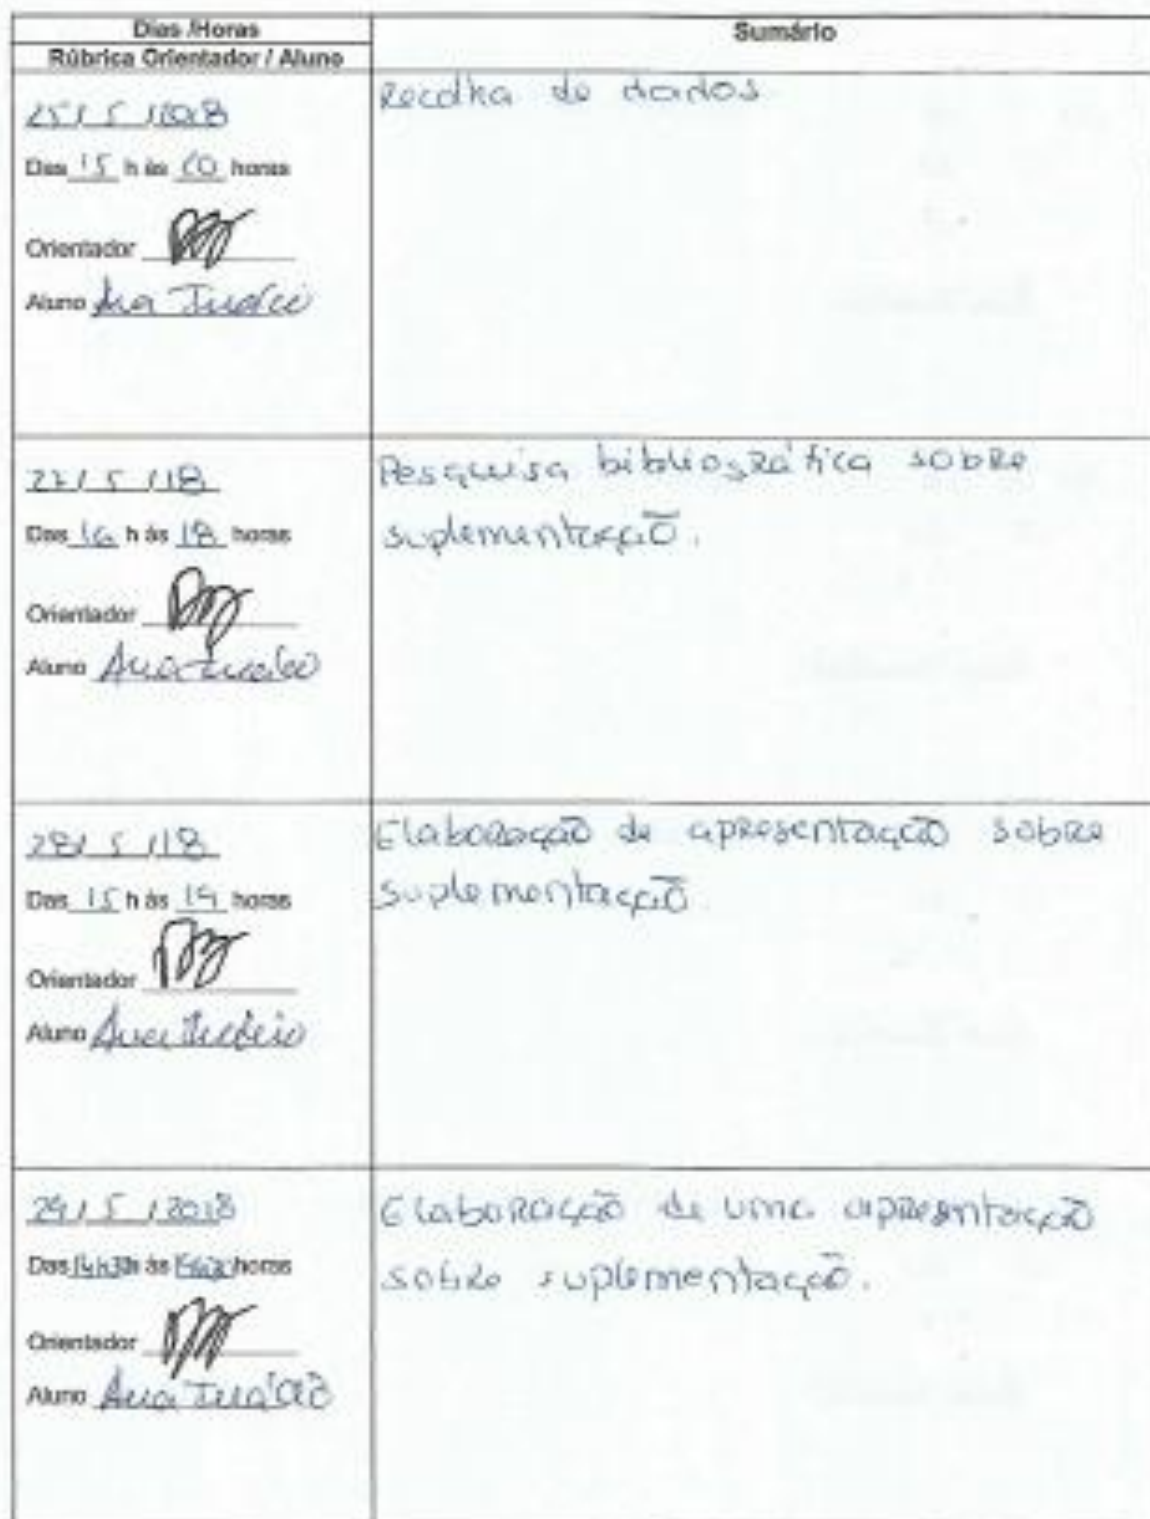 Dias /Horas
Rúbrica Orientador / Aluno
Sumário
25 / 5 / 2018
Das 15 h às horas
Orientador
Aluno Ana
Recolha de dados
/ 5 / 18
Das 16 h às 18 horas
Orientador
Aluno Ana
Pesquisa bibliográfica sobre
suplementação.
28 / 5 / 18
Das 15 h às 19 horas
Orientador
Aluno Ana
Elaboração de apresentação sobre
suplementação
29 / 5 / 2018
Das às horas
Orientador
Aluno Ana
Elaboração de uma apresentação
sobre suplementação.